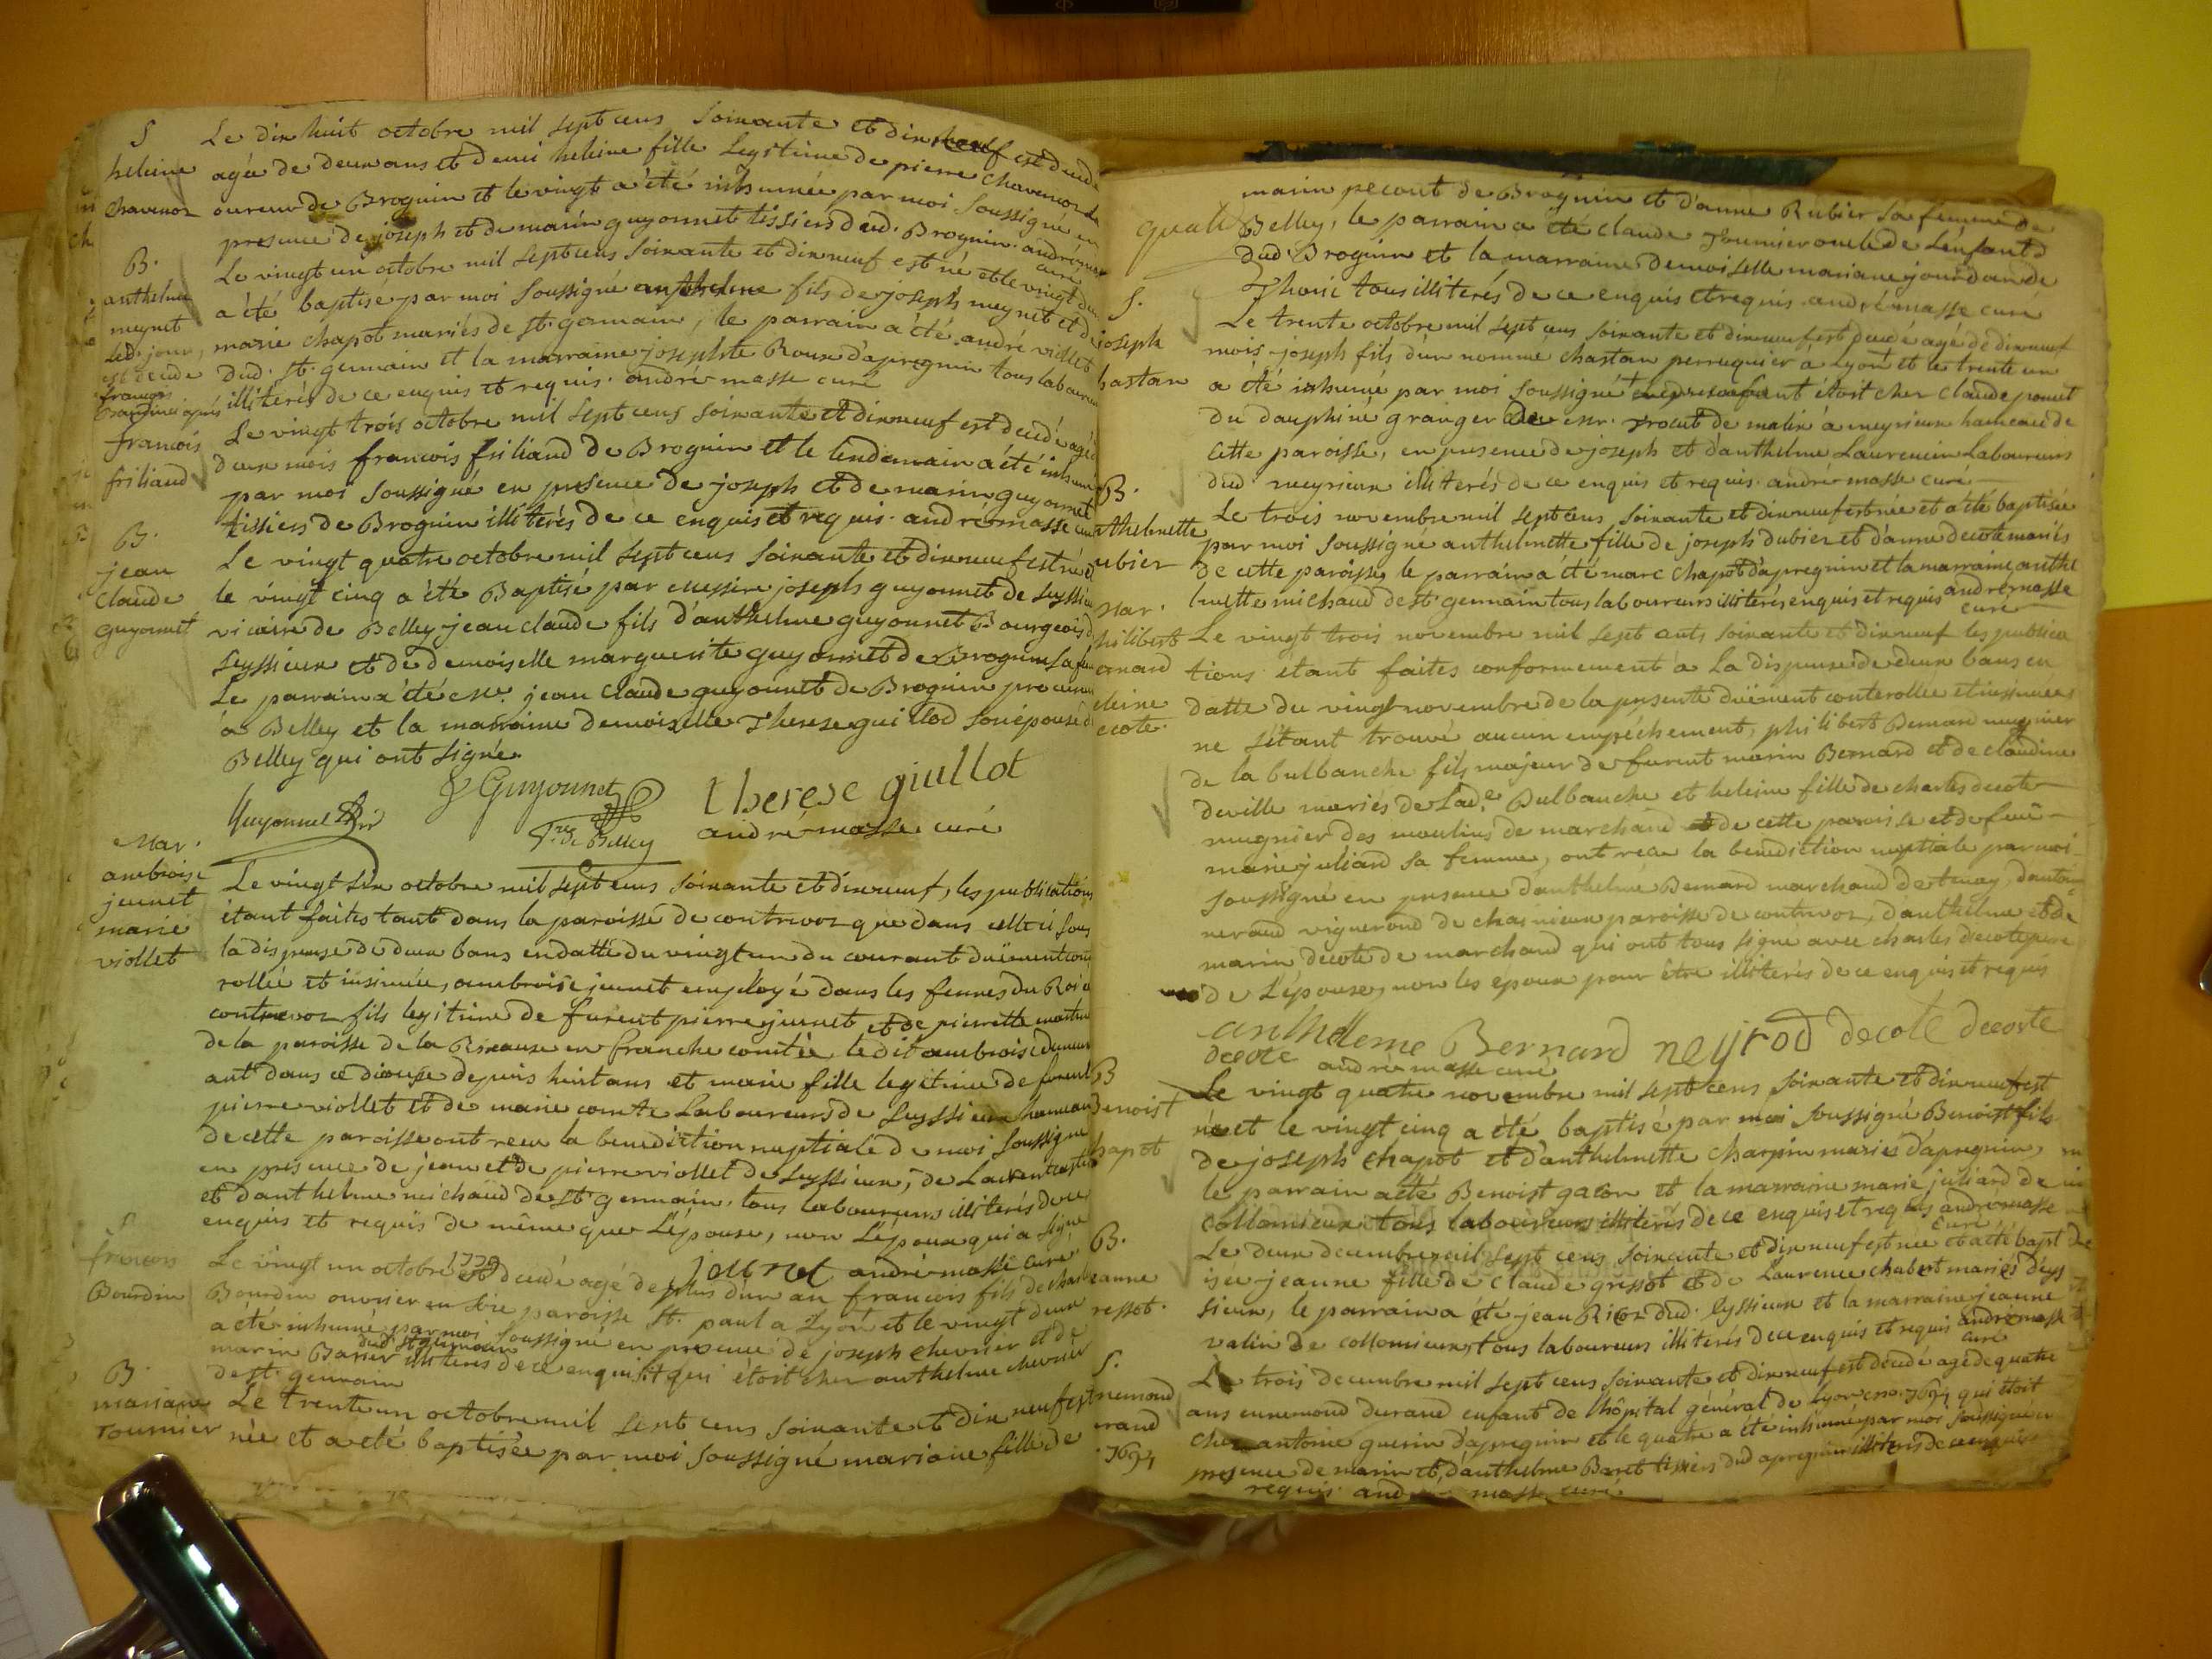 S
heleine
Chavenoz
Le dix huit octobre mil sept cens soixante et dix neuf est decede
agée de deux ans et demi heleine fille Legitime de pierre Chavenoz
oureur de Brognin et le vingt a été inhumée par moi Soussigné en
presence de joseph et de marin guyonnet tissiers dud. Brognin. andré masse
curé
B.
anthelme
meynet
Led. jour,
est decede
francois
Le vingt un octobre mil sept cens soixante et dix neuf est né et le vingt deux
a été baptisé par moi Soussigné anthelme fils de joseph meynet et de
marie chapot mariés de st. germain, le parrain a été andré viollet
dud. st. germain et la marraine josephte Roux d'apregnin tous laboureurs
illiterés de ce enquis et requis. andré masse curé
francois
friliaud
Le vingt trois octobre mil sept cens soixante et dix neuf est decedé agé de
deux mois francois friliaud de Brognin et le lendemain a été inhumé
par moi Soussigné en presence de joseph et de marin guyonnet
tissiers de Brognin illiterés de ce enquis et requis. andré masse curé
B.
jean
Claude
guyonnet
Le vingt quatre octobre mil sept cens soixante et dix neuf est né et
le vingt cinq a été Baptisé par messire joseph guyonnet de Leyssieu
vicaire de Belley jean claude fils d'anthelme guyonnet Bourgeois de
Leyssieux et de demoiselle marguerite guyonnet de Brognin sa fem
Le parrain a été mr. jean claude guyonnet de Brognin procureur
à Belley et la marraine demoiselle Therese guillod son épouse de
Belley qui ont signé.
Guyonnet
J Guyonnet
therese giullot
de Belley
andré masse curé
Mar.
ambroise
jeunet
marie
viollet
Le vingt six octobre mil sept cens soixante et dix neuf, les publications
étant faites tant dans la paroisse de contrevoz que dans celle ci sous
la dispense de deux bans en datte du vingt un du courant duëment cont
rollée et insinuée, ambroise jeunet employé dans les fermes du Roi a
contrevoz fils legitime de furent pierre jeunet et de pierrette
de la paroisse de la Rixouse en franche comtée ledit ambroise demeur
ant dans ce diocese depuis huit ans et marie fille legitime de furent
pierre viollet et de marie comte Laboureurs de Leyssieux hameau
de cette paroisse ont recu la benediction nuptiale de moi Soussigné
en presence de jean et de pierre viollet de Leyssieux, de Laurent
et d'anthelme michaud de st. germain. tous laboureurs illiterés de ce
enquis et requis de même que L'épouse, non L'époux qui a signé
jeunet andré masse curé
S
francois
Bourdin
Le vingt un octobre 1779 est decedé agé de plus d'un an francois fils de
Bourdin ouvrier en soïe paroisse st. paul a Lyon et le vingt deux
a été inhumé par moi Soussigné en presence de joseph chevrier et de
marin Barrier dud. st germain illiterés de ce enquis et qui étoit cher anthelme chevrier
de st. germain
B.
mariane
Tournier
Le trente un octobre mil sept cens soixante et dix neuf est
née et a été baptisée par moi Soussigné mariane fille de
marin pecout de Brognin et d'anne Rubier sa femme de
Belley, le parrain a été claude Tournier oncle de L'enfant
dud. Brognin et la marraine demoiselle mariane jourdan de
Thoui tous illiterés de ce enquis et requis andré masse curé
S.
joseph
hastan
Le trente octobre mil sept cens soixante et dix neuf est decedé agé de dix neuf
mois joseph fils d'un nommé chastan perruquier a Lyon et le trente un
a été inhumé par moi Soussigné étoit cher claude
du dauphiné granger de mr. trocut de malin à meyrieux hameau de
cette paroisse, en presence de joseph et d'anthelme Laurencin Laboureurs
dud. meyrieux illiterés de ce enquis et requis. andré masse curé
B.
nthelmette
ubier
Le trois novembre mil sept cens, soixante et dix neuf est née et a été baptisée
par moi Soussigné anthelmette fille de joseph dubier et d'anne decote mariés
de cette paroisse, le parrain a été marc chapot d'apregnin et la marraine anthel
mette michaud de st. germain tous laboureurs illiterés enquis et requis andré masse
curé
Mar.
hilibert
ernard
eleine
ecote.
Le vingt trois novembre mil sept cents soixante et dix neuf les publica
tions étant faites conformement à la dispense de deux bans en
datte du vingt novembre de la presente duëment conterollée et insinuée
ne s'étant trouvé aucun empêchement, philibert Bernard mugnier
de la bulbanche fils majeur de furent marin Bernard et de claudine
deville mariés de Lad.e Bulbanche et heleine fille de charles decote
mugnier des moulins de marchand de cette paroisse et de feuë
marie juliard sa femme, ont recu la benediction nuptiale par moi
Soussigné en presence d'anthelme Bernard marchand de tenay, d'antoine
neraud vigneron de chasnieux paroisse de contrevoz, d'anthelme et de
marin decote de marchand qui ont tous signé avec charles decote pere
de L'épouse, non les epoux pour être illiterés de ce enquis et requis
anthelleme Bernard neyrod decote decoste
decote andré masse curé
B
Benoist
hapot
Le vingt quatre novembre mil sept cens soixante et dix neuf est
né et le vingt cinq a été baptisé par moi Soussigné Benoist fils
de joseph chapot et d'anthelmette charpin mariés d'apregnin,
le parrain a été Benoist galon et la marraine marie juliard de
collomieux tous laboureurs illiterés de ce enquis et requis andré masse
curé
B.
eanne
ressot.
Le deux decembre mil sept cens soixante et dix neuf est née et a été bapt
isée jeanne fille de claude gressot et de Laurence chabert mariés d'eys
sieux, le parrain a été jean Ricoz dud. Eyssieux et la marraine jeanne
valin de collomieux tous laboureurs illiterés de ce enquis et requis andré masse
curé
S.
nnemond
urand
.7694
Le trois decembre mil sept cens soixante et dix neuf est decedé agé de quatre
ans ennemond durand enfant de l'hôpital général de Lyon no. 7694 qui étoit
chez antoine guerin d'apregnin et le quatre a été inhumé par moi Soussigné en
presence de marin et d'anthelme Baret tissiers dud apregnin illiterés de ce enquis
requis. andré masse curé